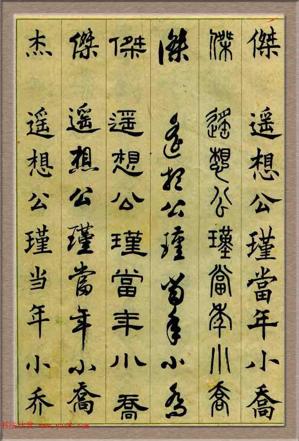 傑 遥想公瑾當年小喬
傑 遥想公瑾當年小喬
傑 遥想公瑾當年小喬
傑 遥想公瑾當年小喬
傑 遥想公瑾當年小喬
杰 遥想公瑾当年小乔